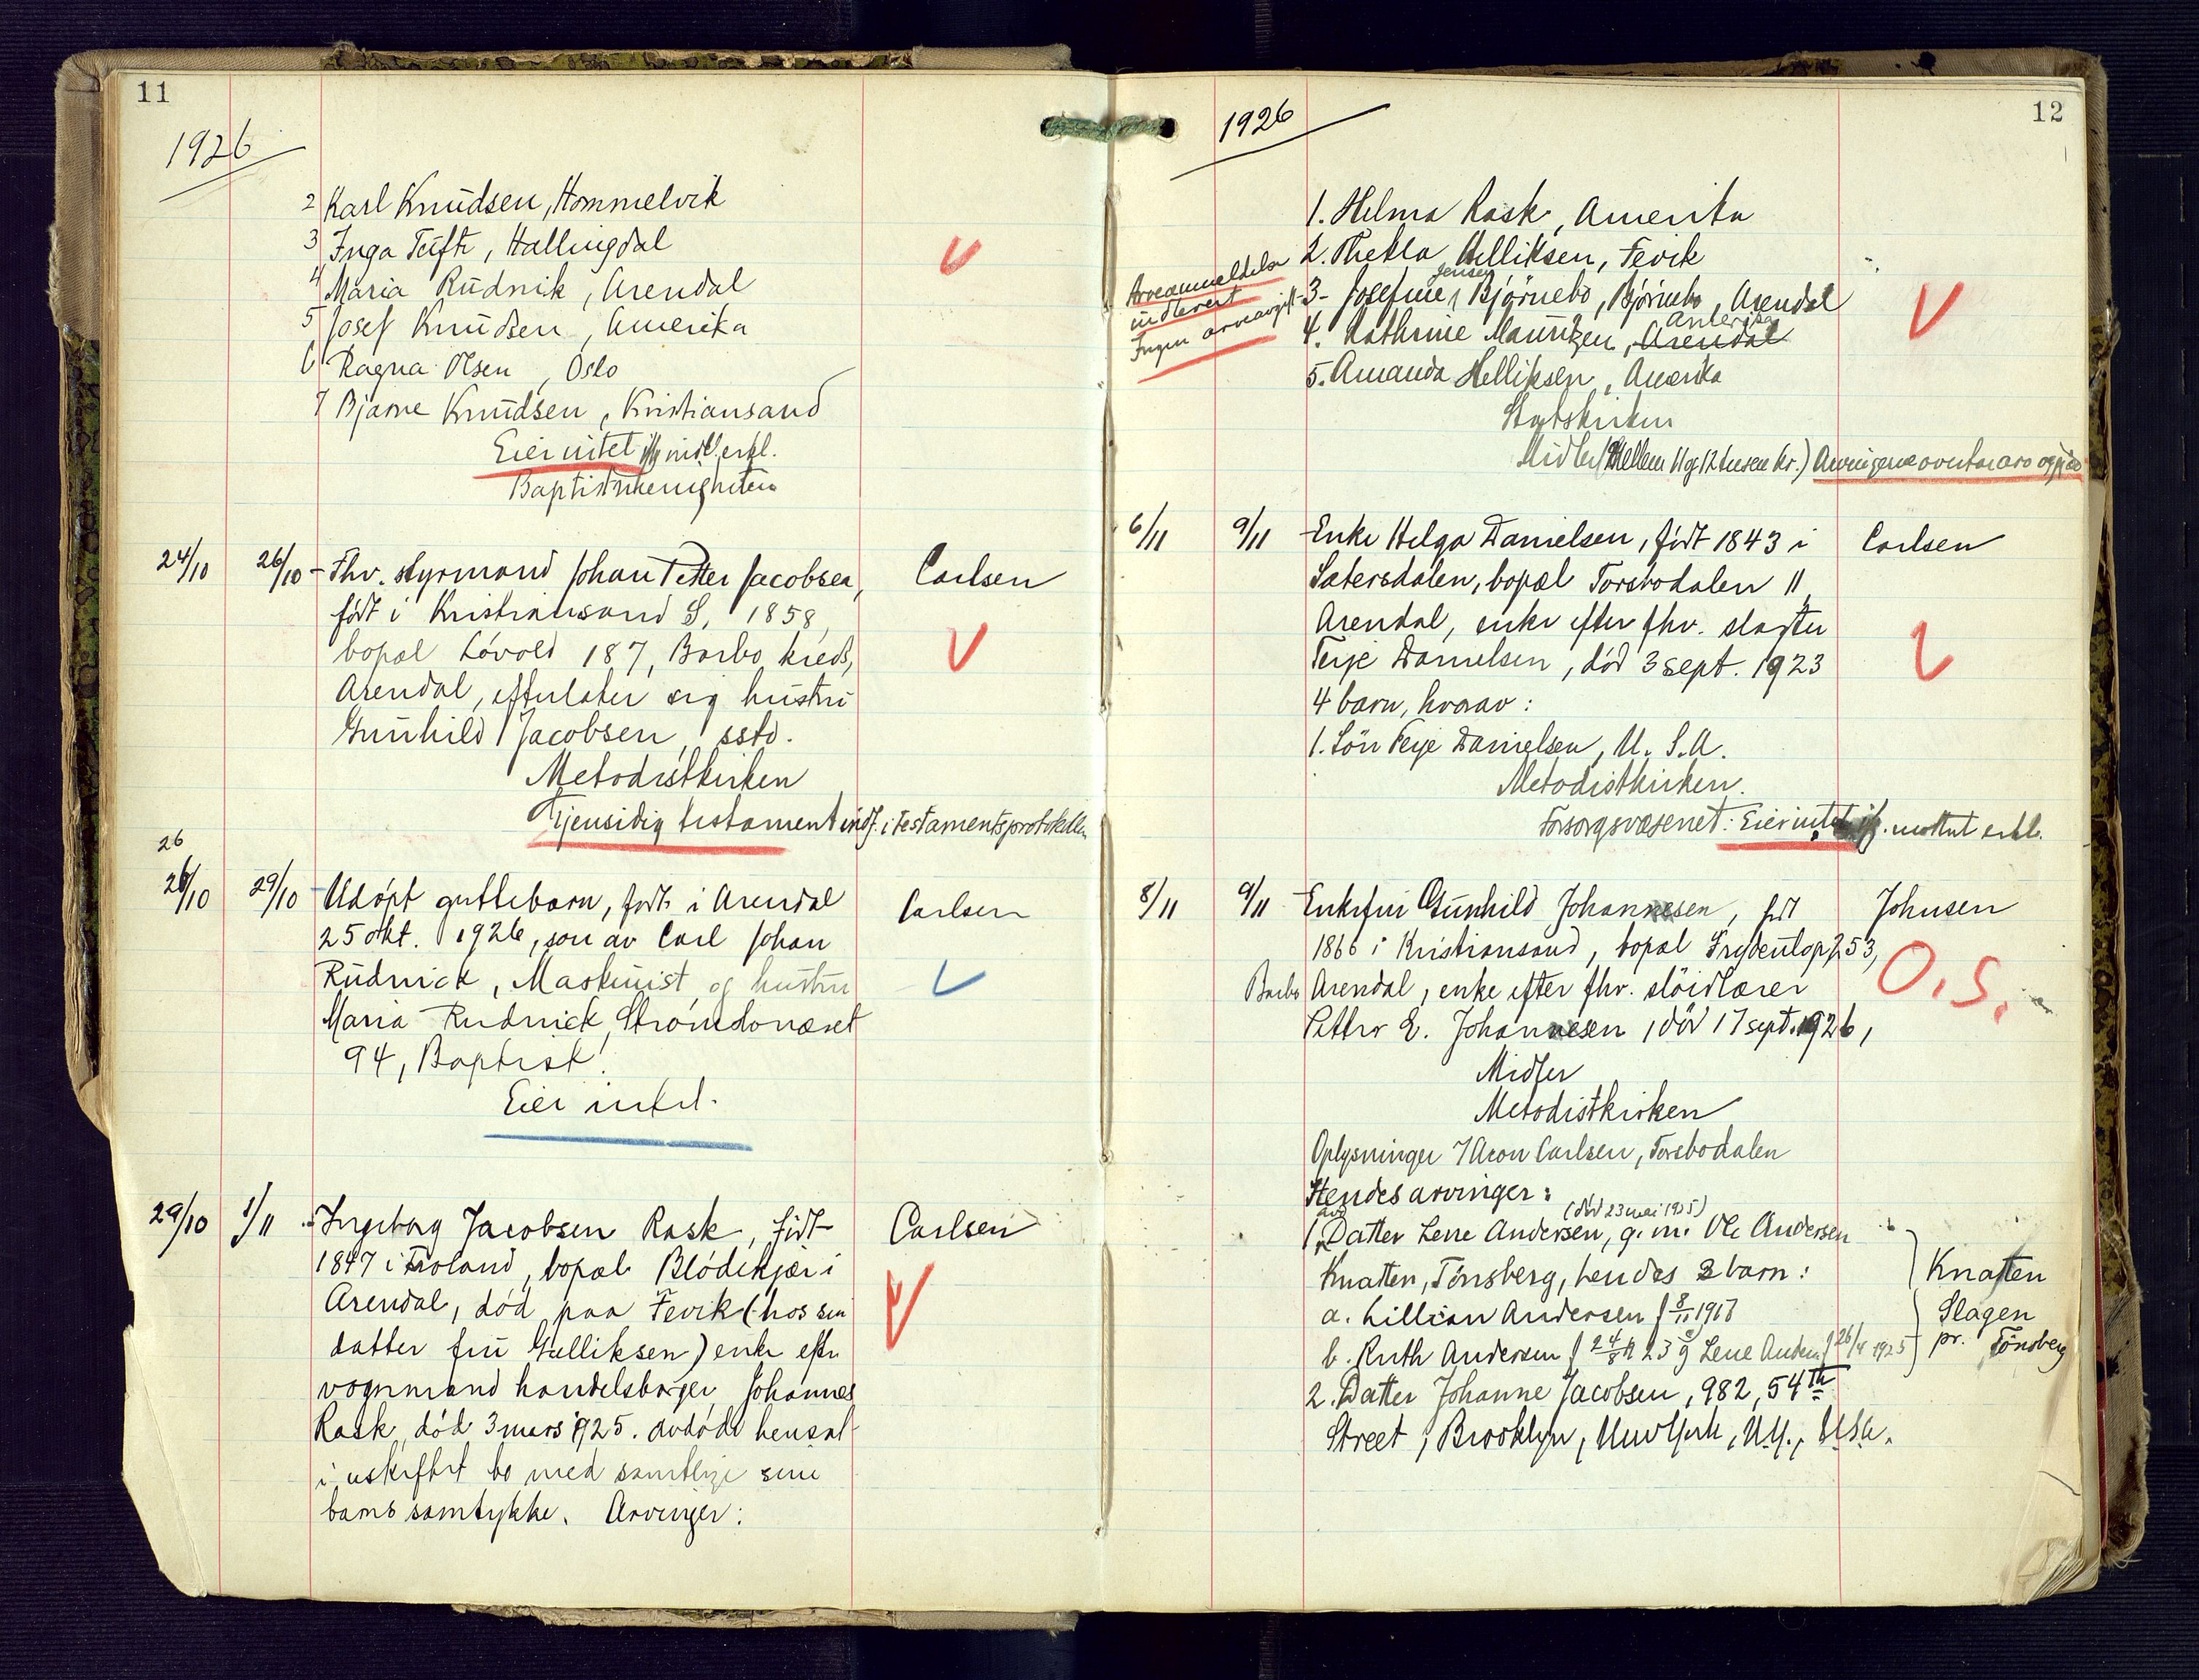 11
1926
2 Karl Knudsen, Hommelvik
3 Inga Tufte, Hallingdal
4 Maria Rudnik, Arendal
5 Josef Knudsen, Amerika
6 Ragna Olsen, Oslo
7 Bjarne Knudsen, Kristiansand
Eier intet ifg. indl. erkl.
Baptistmenigheten
24/10 26/10 - Fhv. styrmand Johan Petter Jacobsen, Carlsen
født i Kristiansand S, 1858,
bopæl Løvold 187, Barbo kreds,
Arendal, efterlater sig hustru
Gunhild Jacobsen, sstd.
Metodistkirken
Gjensidig testament indf. i testamentsprotokollen
26
28/10 29/10 - Udøpt guttebarn, født i Arendal Carlsen
25 okt. 1926, søn av Carl Johan
Rudnick, Maskinist og hustru
Maria Rudnick, Strømsbonæset
94, Baptist.
Eier intet.
29/10 1/11 Ingeborg Jacobsen Rask, født Carlsen
1847 i Froland, bopæl Blødekjær i
Arendal, død paa Fevik (hos sin
datter fru Helliksen) enke efter
vognmand handelsborger Johannes
Rask, død 3 mars 1925. Avdøde hensat
i uskiftet bo med samtlige sine
barns samtykke. Arvinger:
12
1926
1. Helma Rask, Amerika
2. Thekla Helliksen, Fevik
Arveanmeldelse
indlevert
Ingen arveavgift
Jensen
3- Josefine Bjørnebo, Bjørnebo, Arendal
Amerika
4. Kathrine Mauritzen, Arendal
5. Amanda Helliksen, Amerika
Statskirken
Midler (Mellem 11 og 12 tusen kr.) Arvingene overtar arv og gjæld
6/11 9/11 Enke Helga Danielsen, født 1843 i Carlsen
Sætersdalen, bopæl Torsbodalen 11
Arendal, enke efter fhv. slagter
Terje Danielsen, død 3 sept. 1923
4 barn, hvorav:
1. Søn Terje Danielsen, U. S. A.
Metodistkirken.
Forsorgsvæsenet: Eier intet ifg. mottat erkl.
8/11 9/11 Enkefru Gunhild Johannesen, født Johnsen
1866 i Kristiansand, bopæl Frydentopp 53,
O.S.
Barbo Arendal, enke efter fhv. sløidlærer
Petter E. Johannesen, død 17 sept. 1926,
Midler
Metodistkirken
Oplysninger v/ Aron Carlsen, Torsbodalen
Hendes arvinger:
(død 23 mai 1925)
avd.
1. Datter Lene Andersen, g. m. Ole Andersen
Knatten, Tønsberg, hendes 2 barn: Knatten
a. Lillian Andersen f 8/11 1918 Slagen
b. Ruth Andersen f 24/8 1923 og Lene Andersen f 26/4 1925 pr. Tønsberg
2. Datter Johanne Jacobsen, 982, 54th
Street, Brooklyn, New York, N.Y., U.S.A.